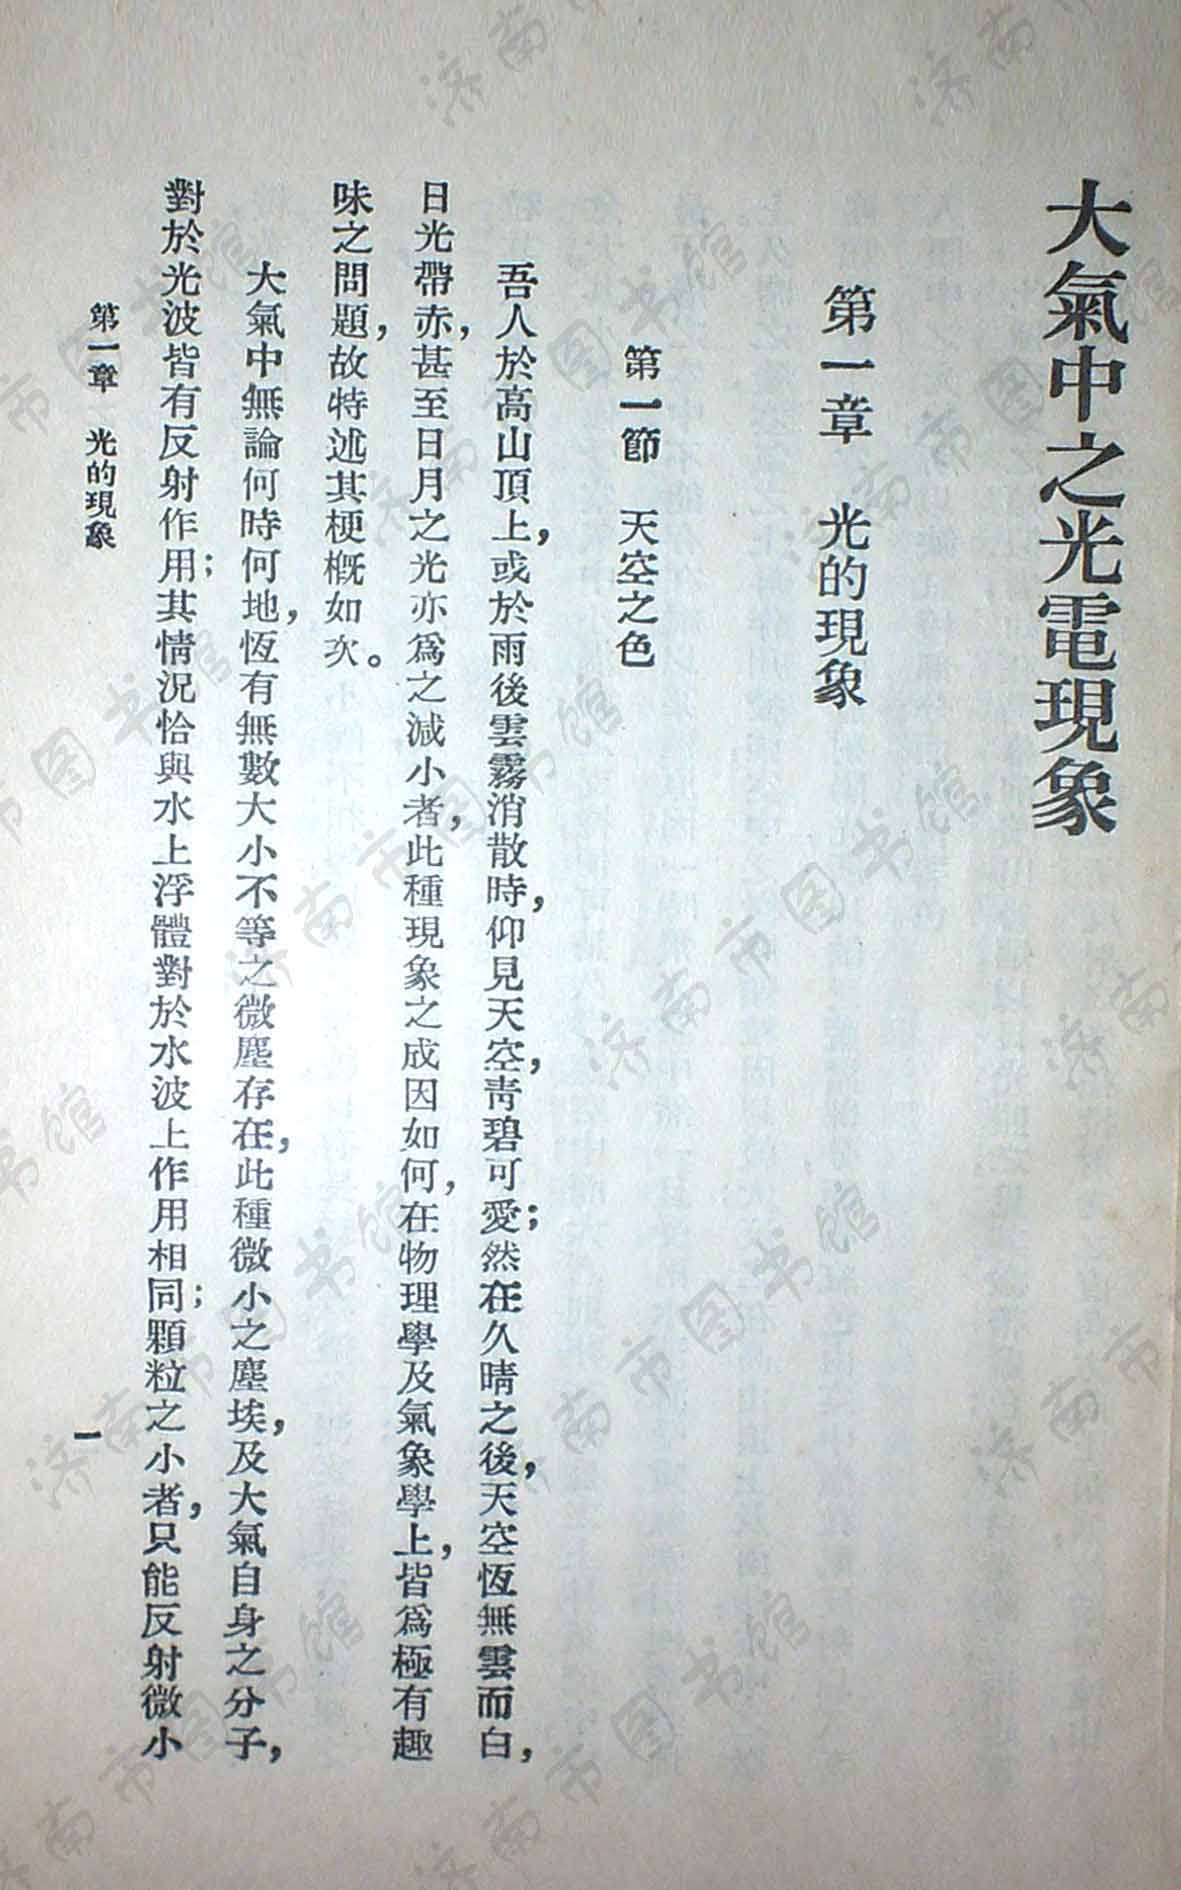 大氣中之光電現象
第一章　光的現象
第一節　天空之色
吾人於高山頂上，或於雨後雲霧消散時，仰見天空，靑碧可愛；然在久晴之後，天空恆無雲而白，
日光帶赤，甚至日月之光亦爲之減小者，此種現象之成因如何，在物理學及氣象學上，皆爲極有趣
味之問題，故特述其梗概如次。
大氣中無論何時何地，恆有無數大小不等之微塵存在，此種微小之塵埃，及大氣自身之分子，
對於光波皆有反射作用；其情況恰與水上浮體對於水波上作用相同；顆粒之小者，只能反射微小
第一章　光的現象
一
济南市图书馆